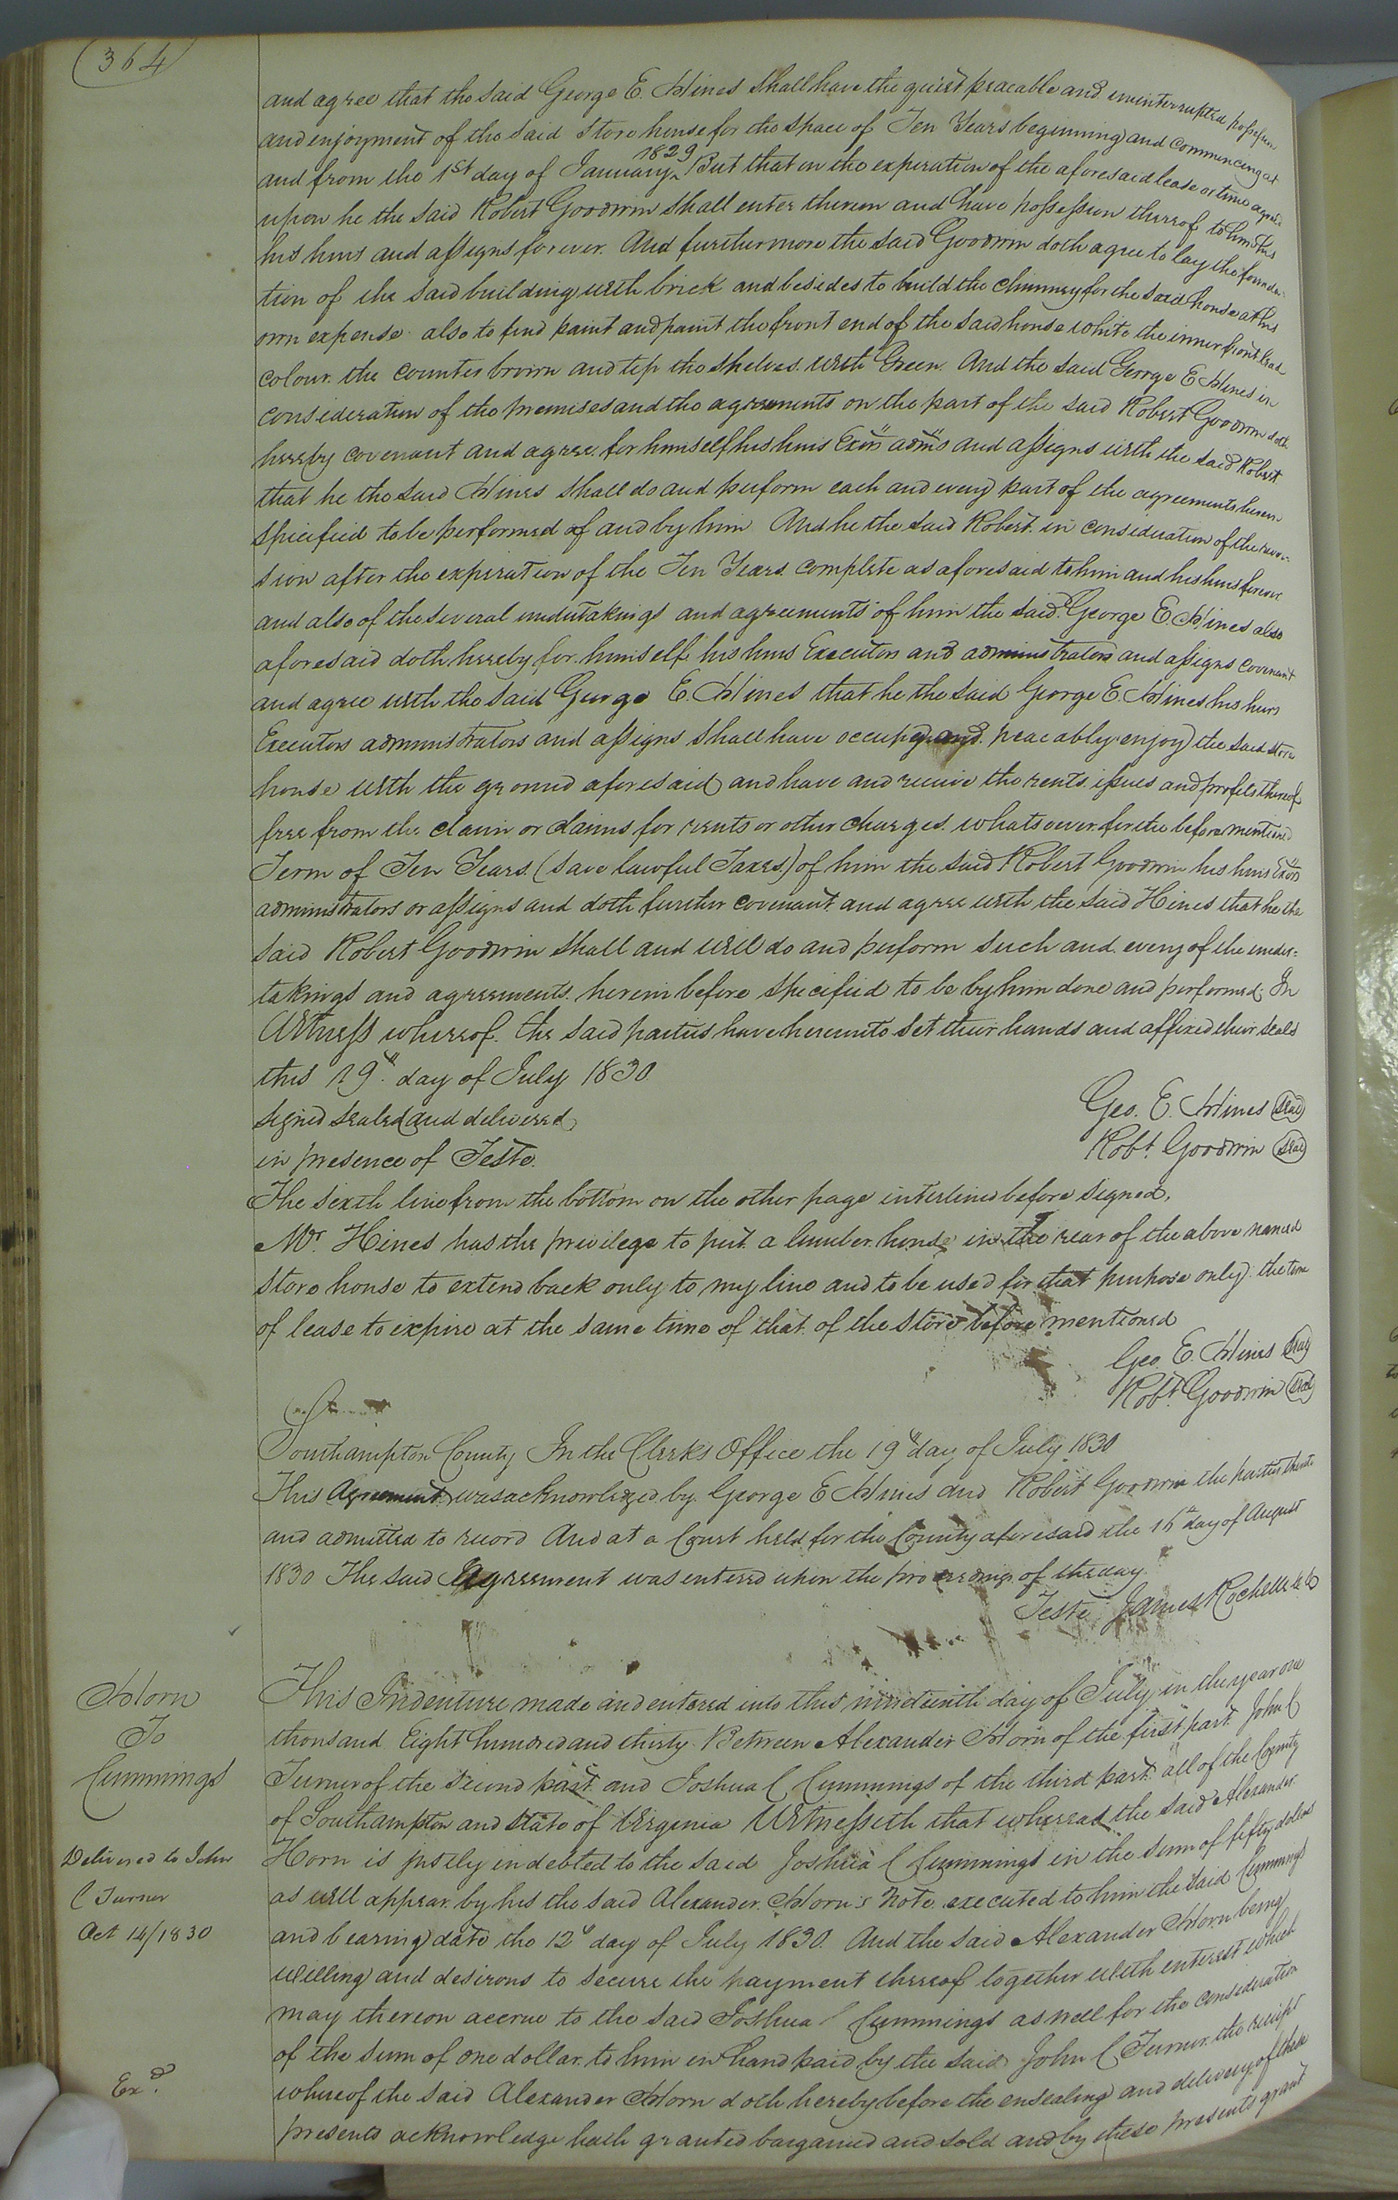 (364)
and agree that the said George E. Hines shall have the quiet peacable and uninterrupted possession
and enjoyment of the said Store house for the space of Ten Years beginning and commencing at
and from the 1st day of January 1829 But that on the experation of the aforesaid lease or time agreed
upon he the said Robert Goodwin shall enter thereon and have possession thereof to him his
his heirs and assigns forever. And furthermore the said Goodwin doth agree to lay the founda-
tion of the said building with brick and besides to build the chimney for the said house at his
own expense also to find paint and paint the front end of the said house white the inner front lead
colour. the counter brown and tip the shelves with Green. And the said George E Hines in
consideration of the premises and the agreements on the part of the said Robert Goodwin doth
hereby covenant and agree for himself his heirs Exors adms and assigns with the said Robert
that he the said Hines shall do and perform each and every part of the agreements herein
specified to be performed of and by him And he the said Robert in consideration of the rever-
sion after the experation of the Ten Years complete as aforesaid to him and his heirs forever
and also of the several undertakings and agreements of him the said George E. Hines also
aforesaid doth hereby for himself his heirs Executors and administrators and assigns covenant
and agree with the said George E. Hines that he the said George E. Hines his heirs
Executors administrators and assigns shall have occupy and peacably enjoy the said store
house with the ground aforesaid and have and receive the rents issues and profits thereof
free from the claim or claims for rents or other charges whatsoever for the before mentioned
Term of Ten Years (save lawful Taxes) of him the said Robert Goodwin his heirs Exors
administrators or assigns and doth further covenant and agree with the said Hines that he the
said Robert Goodwin shall and will do and perform such and every of the under-
takings and agreements herein before specified to be by him done and performed In
Witness whereof. the said parties have hereunto set their hands and affixed their seals
this 19th day of July 1830
Geo. E. Hines (Seal)
signed sealed and delivered
Robt. Goodwin (Seal)
in presence of Teste.
The sixth line from the bottom on the other page interlined before signed,
Mr. Hines has the privilege to put a lumber house in the rear of the above named
store house to extend back only to my line and to be used for that purpose only the time
of lease to expire at the same time of that of the store before mentioned
Geo. E. Hines (Seal)
Robt. Goodwin (Seal)
Southampton County In the Clerks Office the 19th day of July 1830
This Agreement was acknowledged by George E Hines and Robert Goodwin the parties thereto
and admitted to record And at a Court held for the County aforesaid the 16th day of August
1830 The said Agreement was entered upon the proceedings of the day
Teste James Rochelle
Horn
To
Cummings
Delivered to John
C Turner
Oct 14/1830
Exd.
This Indenture made and entered into this nineteenth day of July in the year one
thousand Eight hundred and thirty Between Alexander Horn of the first part John C
Turner of the second part and Joshua C Cummings of the third part all of the County
of Southampton and State of Virginia Witnesseth that whereas the said Alexander
Horn is justly indebted to the said Joshua C Cummings in the sum of fifty dollars
as will appear by his the said Alexander Horn's Note executed to him the said Cummings
and bearing date the 12th day of July 1830. And the said Alexander Horn being
willing and desirous to secure the payment thereof together with interest which
may thereon accrue to the said Joshua C Cummings as well for the consideration
of the sum of one dollar to him in hand paid by the said John C Turner the reciept
whereof the said Alexander Horn doth hereby before the ensealing and delivery of these
presents acknowledge hath granted bargained and sold and by these presents grant